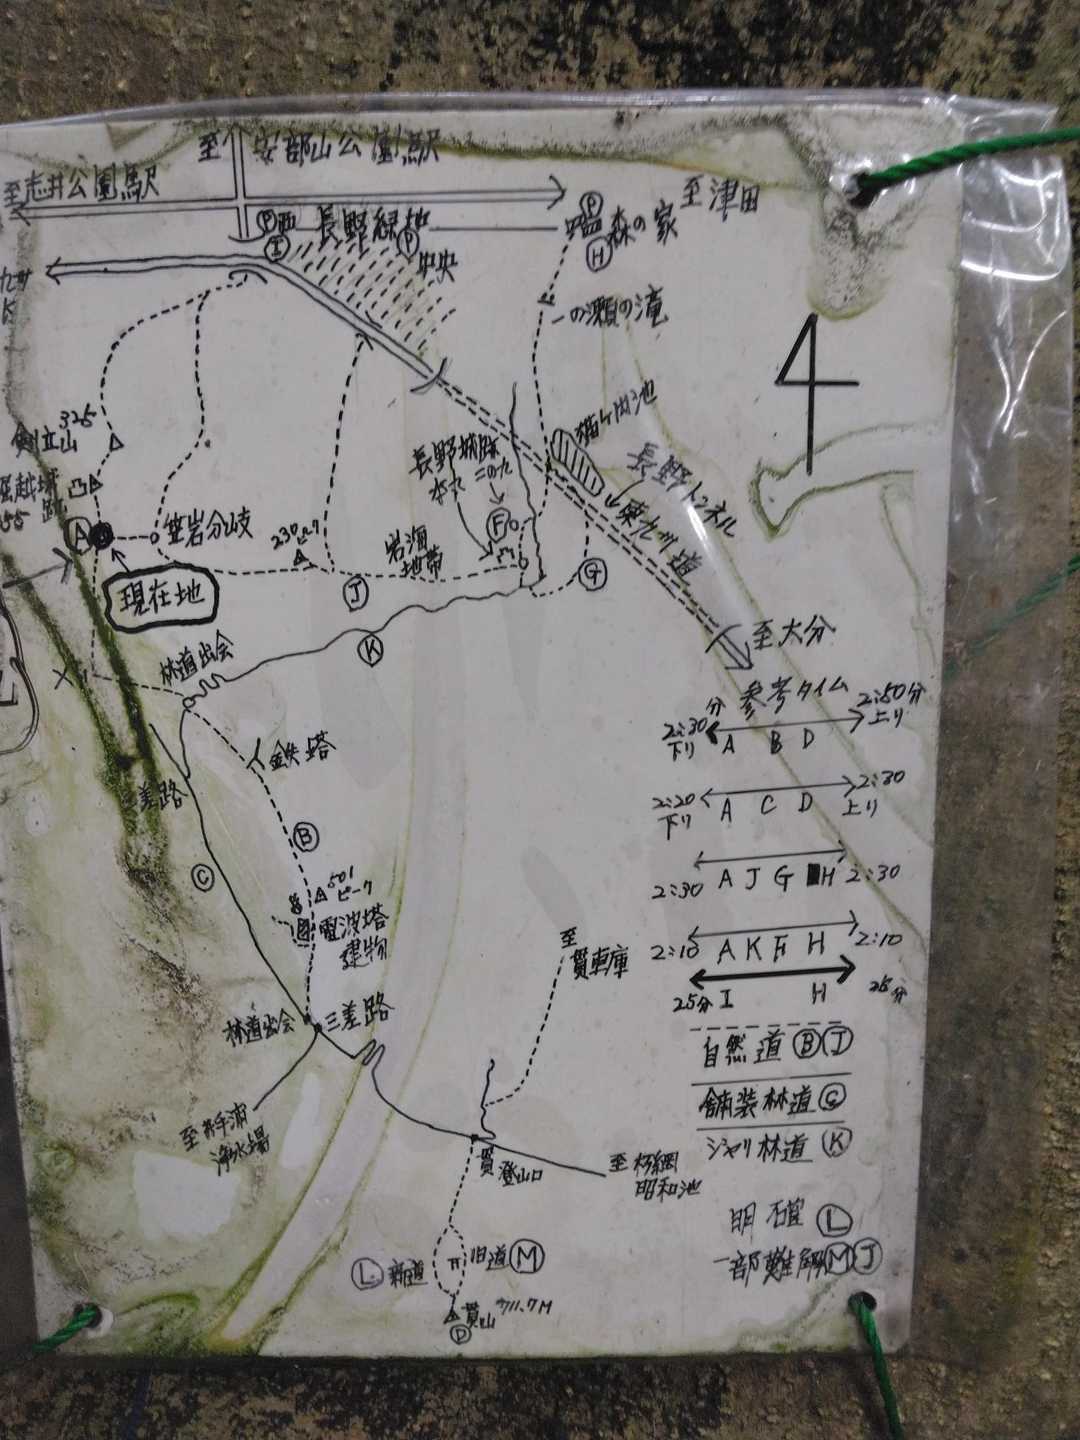 至 安部山公園駅
至志井公園駅
至津田
Ⓟ西 長野緑地 Ⓟ
Ⓘ
中央
Ⓟ
森の家
Ⓗ
一の瀬の滝
4
325
剣立山
Ⓐ
笹岩分岐
現在地
230ピーク
長野城跡
本丸 二の丸
Ⓕ
猫ケ肉池
長野トンネル
東九州道
岩海
地帯
Ⓙ
Ⓖ
Ⓚ
至大分
林道出会
鉄塔
三差路
Ⓑ
Ⓒ
501
ピーク
電波塔
建物
林道出会
三差路
至
貫車庫
至井手浦
浄水場
貫
登山口
至朽網
昭和池
Ⓛ新道 旧道Ⓜ
貫山 711.7M
Ⓓ
参考タイム
2:30分 下り A B D 2:50分 上り
2:20 下り A C D 2:30 上り
2:30 A J G H 2:30
2:10 A K F H 2:10
25分 I H 25分
自然道ⒷⒿ
舗装林道Ⓒ
ジャリ林道Ⓚ
明確Ⓛ
一部難解ⓂⒿ